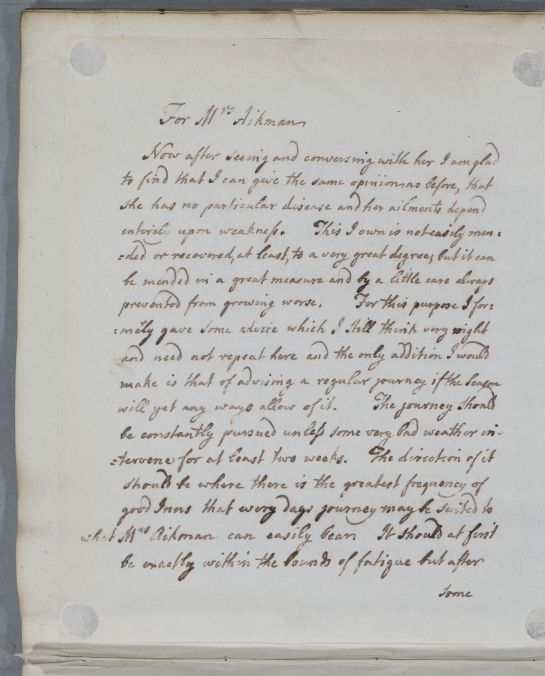 For Mrs Aikman
Now after seeing and conversing with her I am glad
to find that I can give the same opinion as before, that
she has no particular disease and her ailments depend
entirely upon weakness. This I own is not easily men=
=ded or recovered, at least, to a very great degree; but it can
be mended in a great measure and by a little care always
prevented from growing worse. For this purpose I for=
=merly gave some advice which I still think very right
and need not repeat here and the only addition I would
make is that of advising a regular journey if the Season
will yet any ways allow of it. The journey should
be constantly pursued unless some very bad weather in-
=tervene for at least two weeks. The direction of it
should be where there is the greatest frequency of
good Inns that every days journey may be suited to
what Mrs Aikman can easily bear. It should at first
be exactly within the bounds of fatigue but after
some